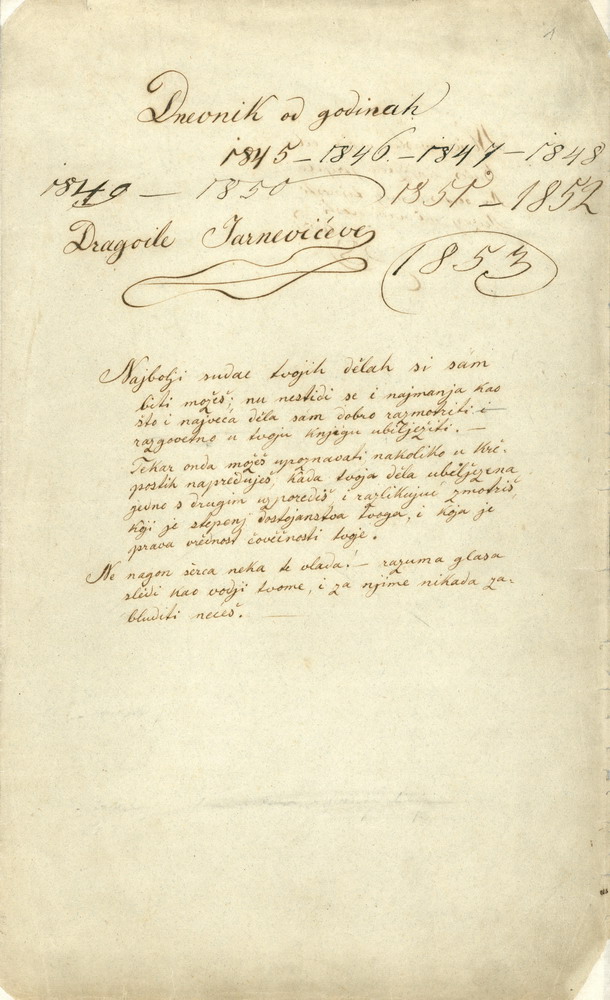 1
Dnevnik od godinah
1845 – 1846 – 1847 – 1848
1849 – 1850 1851 – 1852
Dragoile Jarnevićeve
1853
Najbolji sudac tvojih dělah si sám
biti možeš; nu nestidi se i najmanja kao
što i najveća děla sam dobro razmotriti i
razgovetno u tvoju knjigu ubělježiti. –
Tekar onda možeš upoznavati nakoliko u krě-
postih napreduješ, kada tvoja děla ubělježena
jedno s drugim uzporediš i razlikujuć zmotriš
koji je stepenj dostojanstva tvoga, i koja je
prava vrědnost čověčnosti tvoje.
Ne nagon sěrca neka te vlada! – razuma glasa
slědi kao vodji tvome, i za njime nikada za-
bluditi nećeš. –